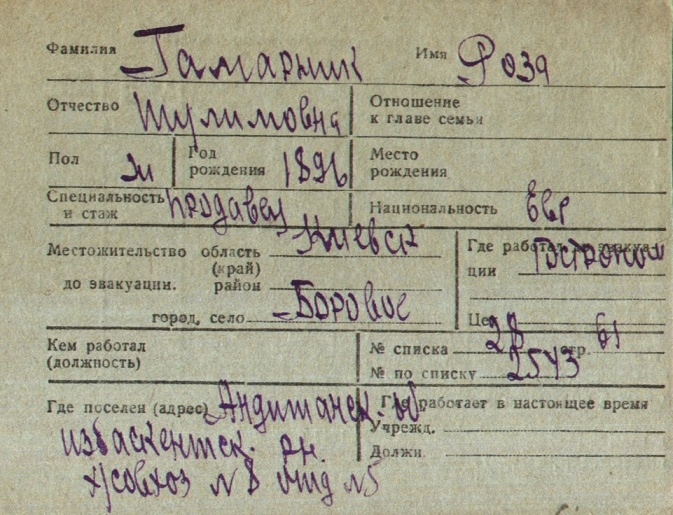 Фамилия Гамарник Имя Роза
Отчество Шулимовна Отношение к главе семьи
Пол м Год рождения 1896 Место рождения
Специальность и стаж продавец Национальность Евр
Местожительство область (край) Киевск Где работал до эвакуации Гастроном
до эвакуации. район
город, село Боровое Цех
Кем работал (должность) № списка 28 стр. 61
№ по списку 2543
Где поселен (адрес) Андижанск. об. Где работает в настоящее время
избаскентск. рн. Учрежд.
х/совхоз № 8 отд № 5 Должн.